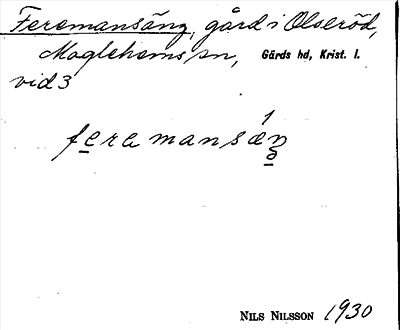 Feremansäng, gård i Olseröd,
Maglehems sn, Gärds hd, Krist. l.
vid 3
NILS NILSSON 1930